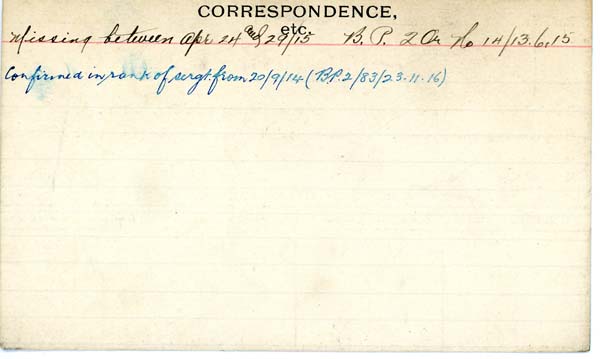 CORRESPONDENCE,
etc.
Missing between Apr 24 and 29/15 B. P. 2 Or No 14/13.6.15
Confirmed in rank of sergt from 20/9/14 (B.P.2/83/23-11-16)